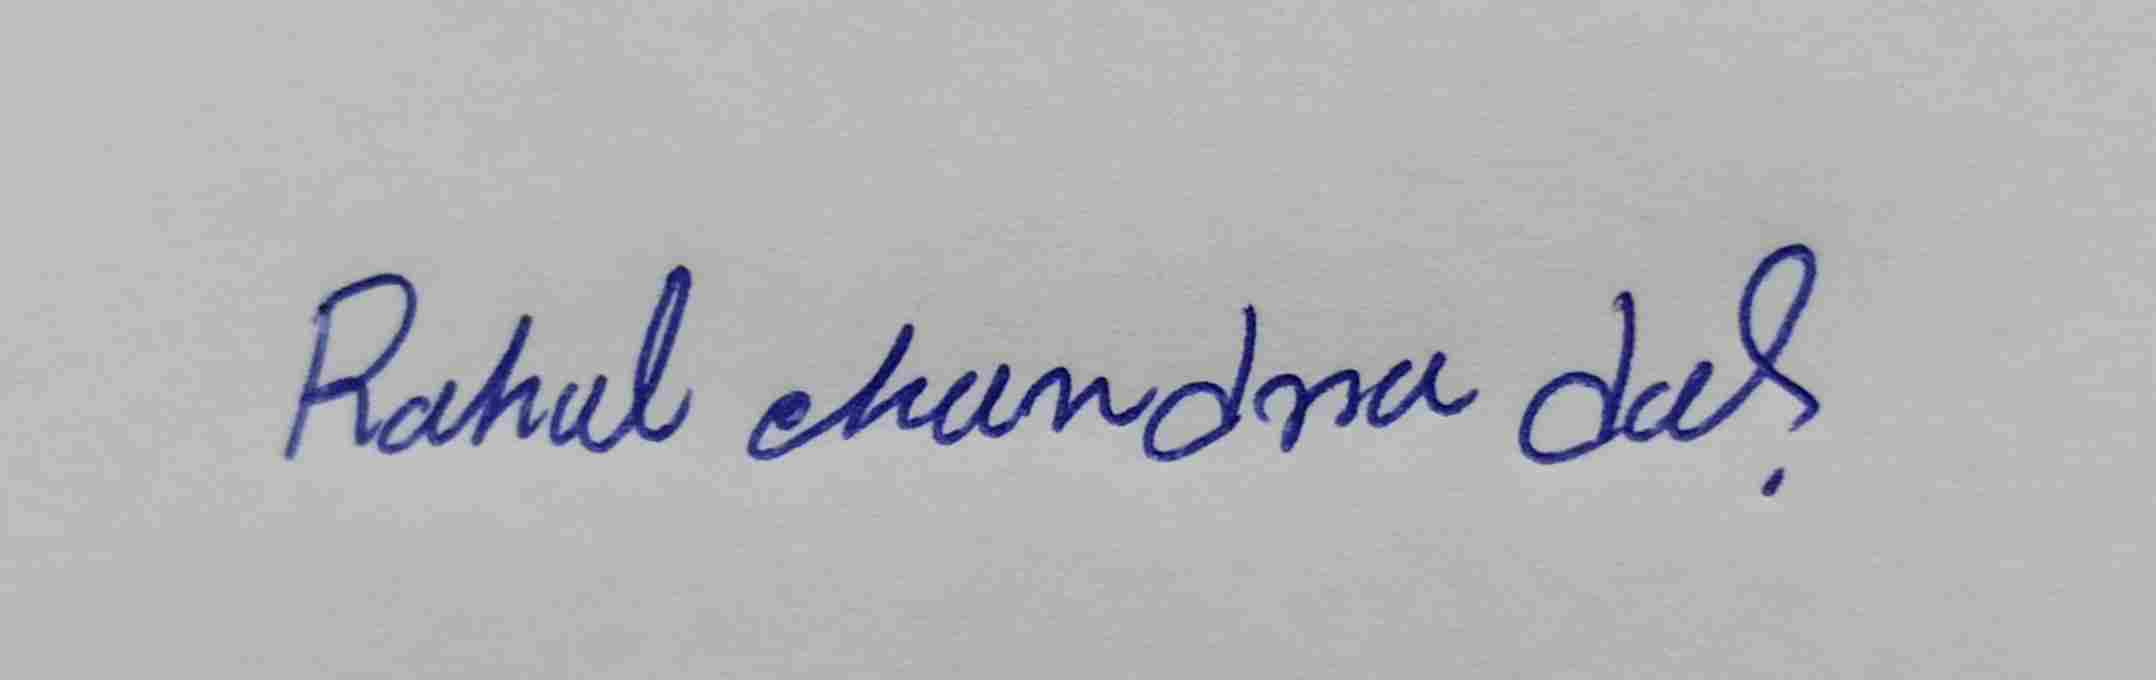 Rahul chandra das.